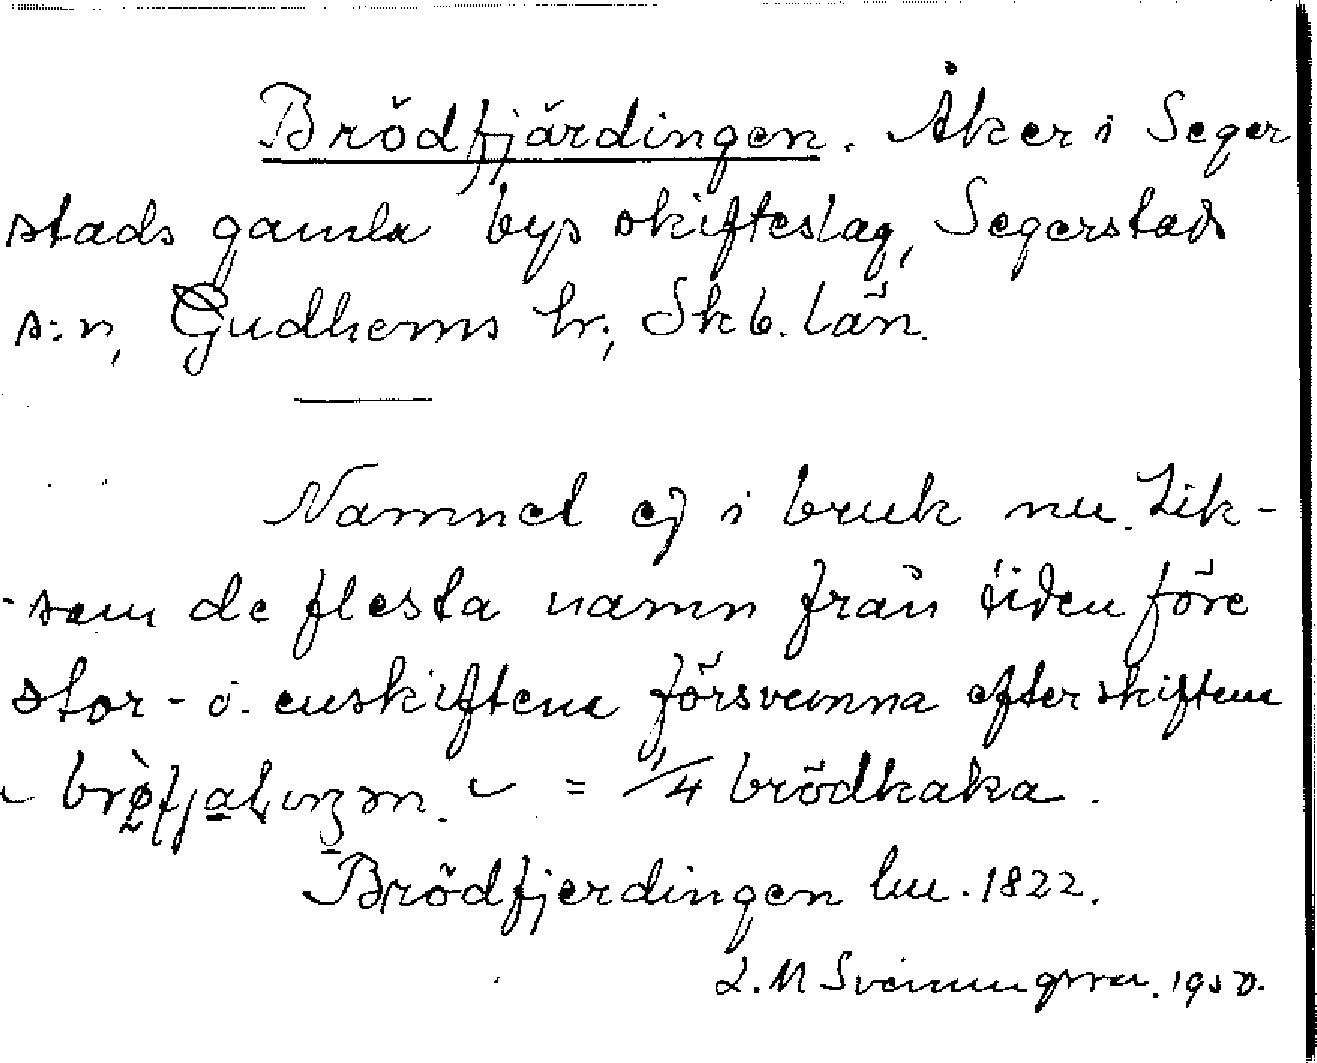 Brödfjärdingen. Åker i Seger
stads gamla bys skifteslag, Segerstads
s:n, Gudhems hr; Skb. län.
Namnet ej i bruk nu. Lik-
-som de flesta namn från tiden före
stor- o. enskiftena försvunna efter skiftena
= 1/4 brödkaka.
Brödfjerdingen lm. 1822.
L. M Svenungsson. 1950.